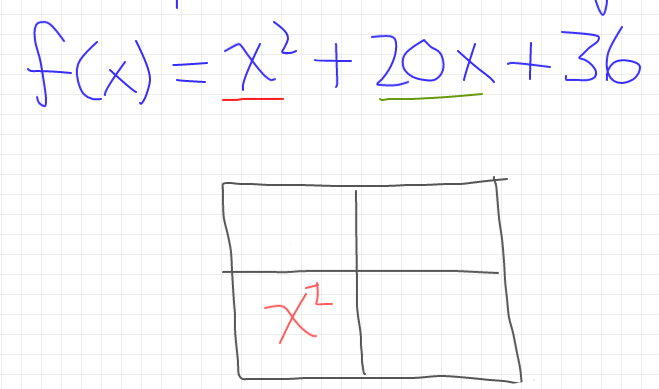 f(x) = x² + 20x + 36
x²